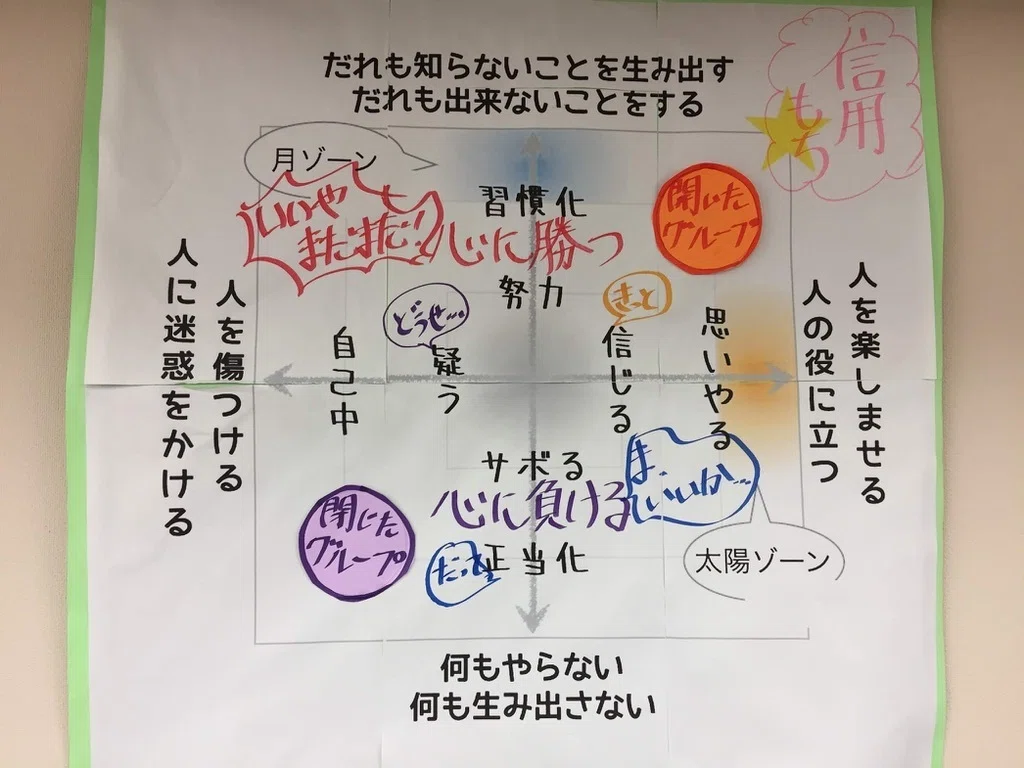 だれも知らないことを生み出す
だれも出来ないことをする
信用
もち
月ゾーン
いいや
まだまだ!
習慣化
心に勝つ
開いた
グループ
努力
どうせ…
きっと
人を傷つける
人に迷惑をかける
自己中
疑う
信じる
思いやる
人を楽しませる
人の役に立つ
サボる
心に負ける
ま、
いいか…
閉じた
グループ
だって
正当化
太陽ゾーン
何もやらない
何も生み出さない